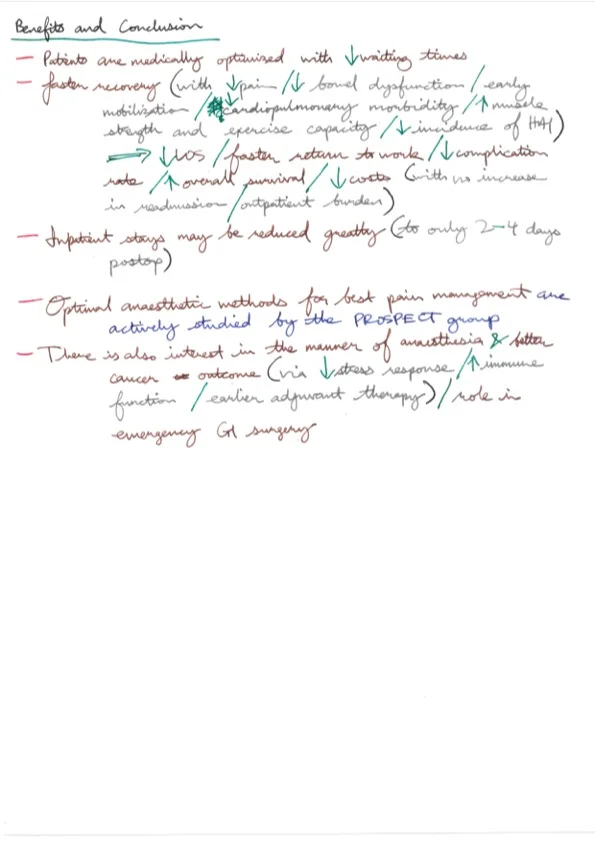 Benefits and Conclusion
— Patients are medically optimized with ↓waiting times
— faster recovery (with ↓pain /↓ bowel dysfunction / early
mobilization / ↓cardiopulmonary morbidity /↑ muscle
strength and exercise capacity /↓ incidence of HAI)
⟹ ↓LOS / faster return to work /↓complication
rate /↑ overall survival /↓ costs (with no increase
in readmission / outpatient burden)
— Inpatient stays may be reduced greatly (to only 2-4 days
postop)
— Optimal anaesthetic methods for best pain management are
actively studied by the PROSPECT group
— There is also interest in the manner of anaesthesia & better
cancer outcome (via ↓stress response /↑ immune
function / earlier adjuvant therapy) / role in
emergency GI surgery